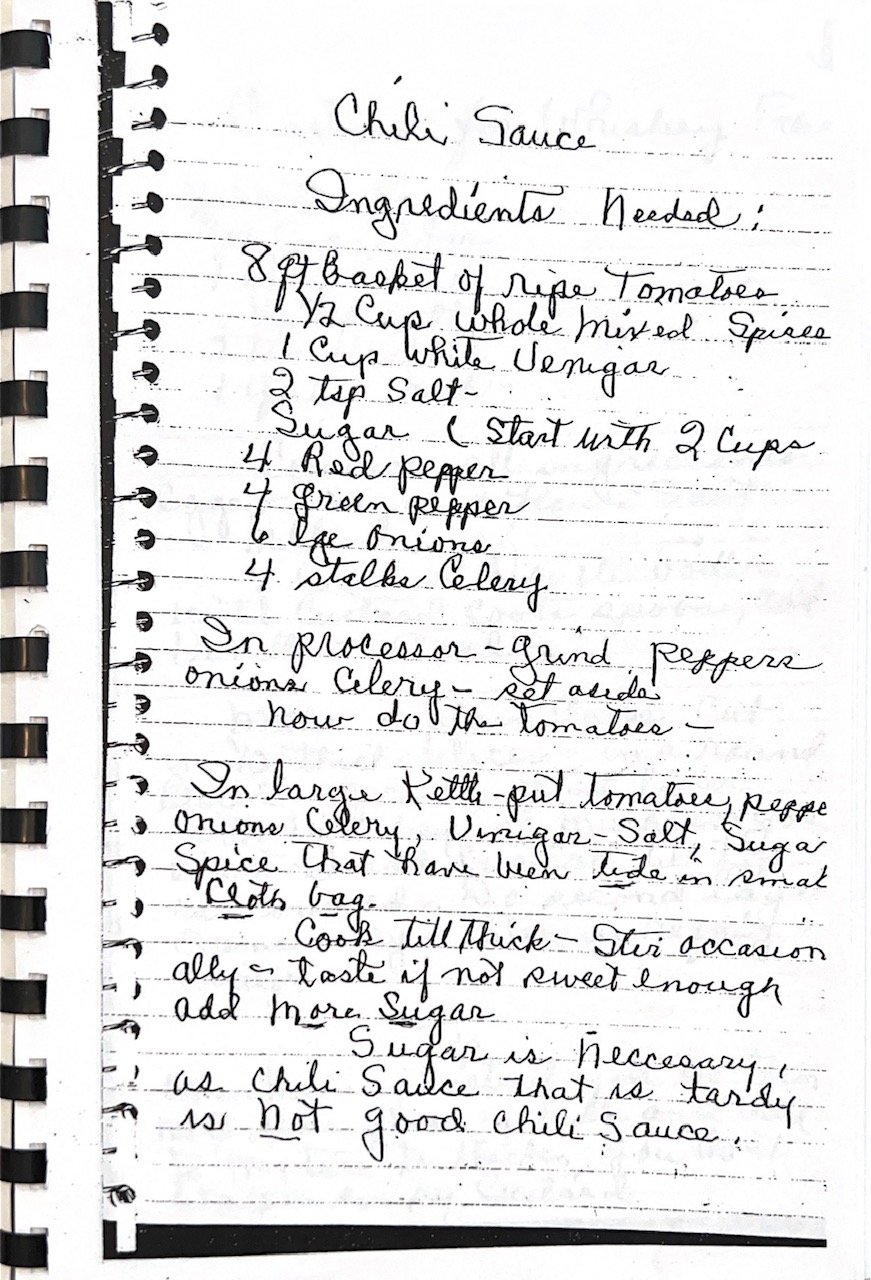 Chili Sauce
Ingredients Needed:
8 qt Basket of ripe Tomatoes
1/2 Cup whole mixed Spices
1 Cup white Venigar
2 tsp Salt-
Sugar ( Start with 2 Cups
4 Red pepper
4 green pepper
6 lge onions
4 stalks Celery
In processor - grind peppers
onions Celery - set aside
now do the tomatoes -
In large Kettle - put tomatoes, peppe
onions Celery, Vinigar - Salt, Suga
Spice that have been tide in smal
Cloth bag.
Cook till thick - Stir occasion
ally - taste if not sweet enough
add more Sugar
Sugar is neccesary,
as chili Sauce that is tardy
is not good chili Sauce.